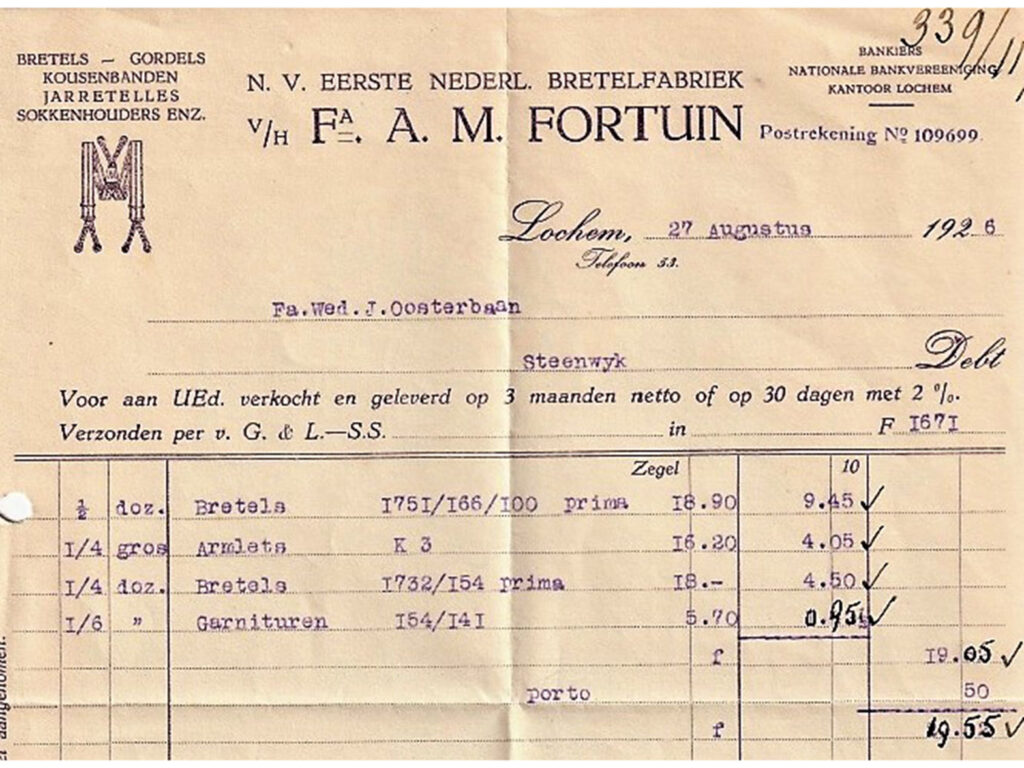 339/11
BRETELS — GORDELS
KOUSENBANDEN
JARRETELLES
SOKKENHOUDERS ENZ.
N. V. EERSTE NEDERL. BRETELFABRIEK
V/H FA. A. M. FORTUIN
BANKIERS
NATIONALE BANKVEREENIGING
KANTOOR LOCHEM
Postrekening No 109699.
Lochem, 27 Augustus 1926
Telefoon 53.
Fa.Wed.J.Oosterbaan
Steenwyk Debt
Voor aan UEd. verkocht en geleverd op 3 maanden netto of op 30 dagen met 2 %.
Verzonden per v. G. & L.—S.S. in F 1671
Zegel 10
½ doz. Bretels 1751/166/100 prima 18.90 9.45 ✓
1/4 gros Armlets K 3 16.20 4.05 ✓
1/4 doz. Bretels 1732/154 prima 18.- 4.50 ✓
1/6 " Garnituren 154/141 5.70 0.95 ✓
f 19.05 ✓
porto 50
f 19.55 ✓
aangenomen.